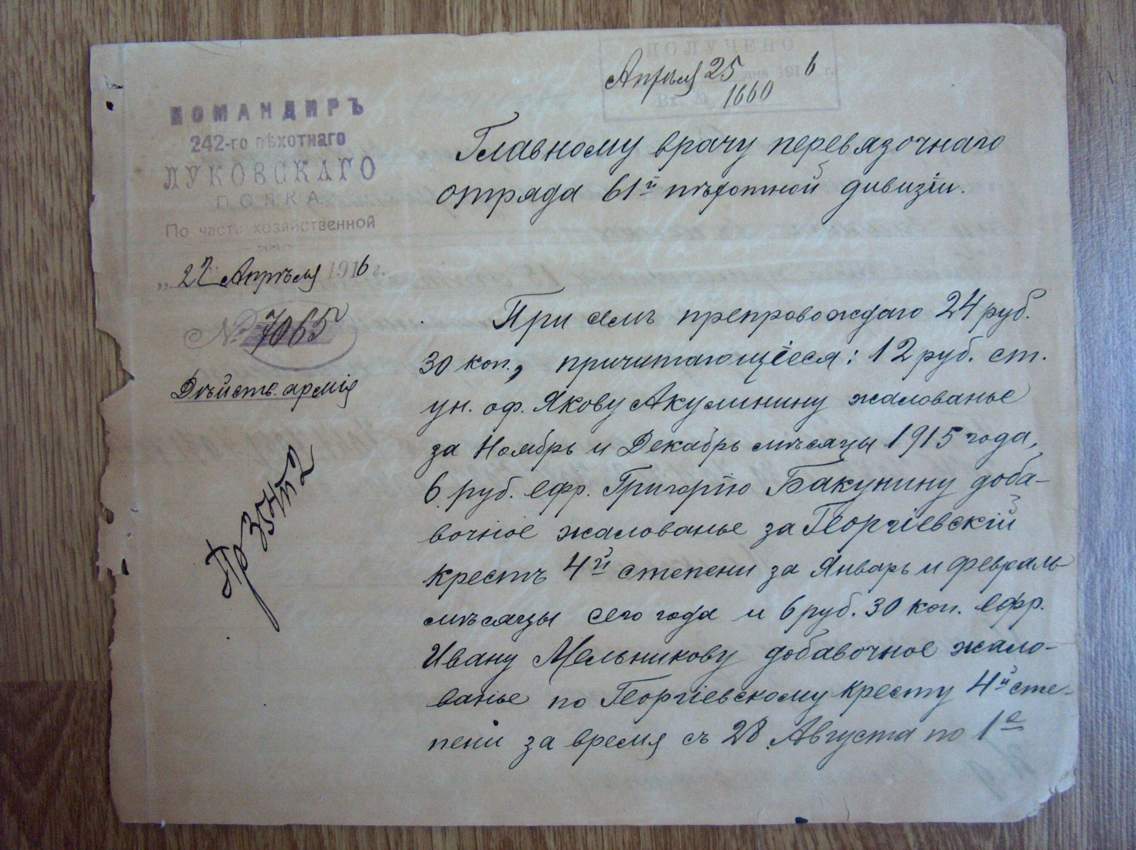 ПОЛУЧЕНО
Апрѣля 25 6
1660
КОМАНДИРЪ
242-го пѣхотнаго
ЛУКОВСКАГО
ПОЛКА.
По части хозяйственной
„22 Апрѣля 1916 г.
№ 7065
Дѣйств. армія
Главному врачу перевязочнаго
отряда 61й пѣхотной дивизіи.
При семъ препровождаю 24 руб.
30 коп., причитающіеся: 12 руб. ст.
ун. оф. Якову Акулинину жалованье
за Ноябрь и Декабрь мѣсяцы 1915 года,
6 руб. ефр. Григорію Бакунину доба-
вочное жалованье за Георгіевскій
крестъ 4й степени за Январь и Февраль
мѣсяцы сего года и 6 руб. 30 коп. ефр.
Ивану Мельникову добавочное жало-
ванье по Георгіевскому кресту 4й сте-
пени за время съ 28 Августа по 1е